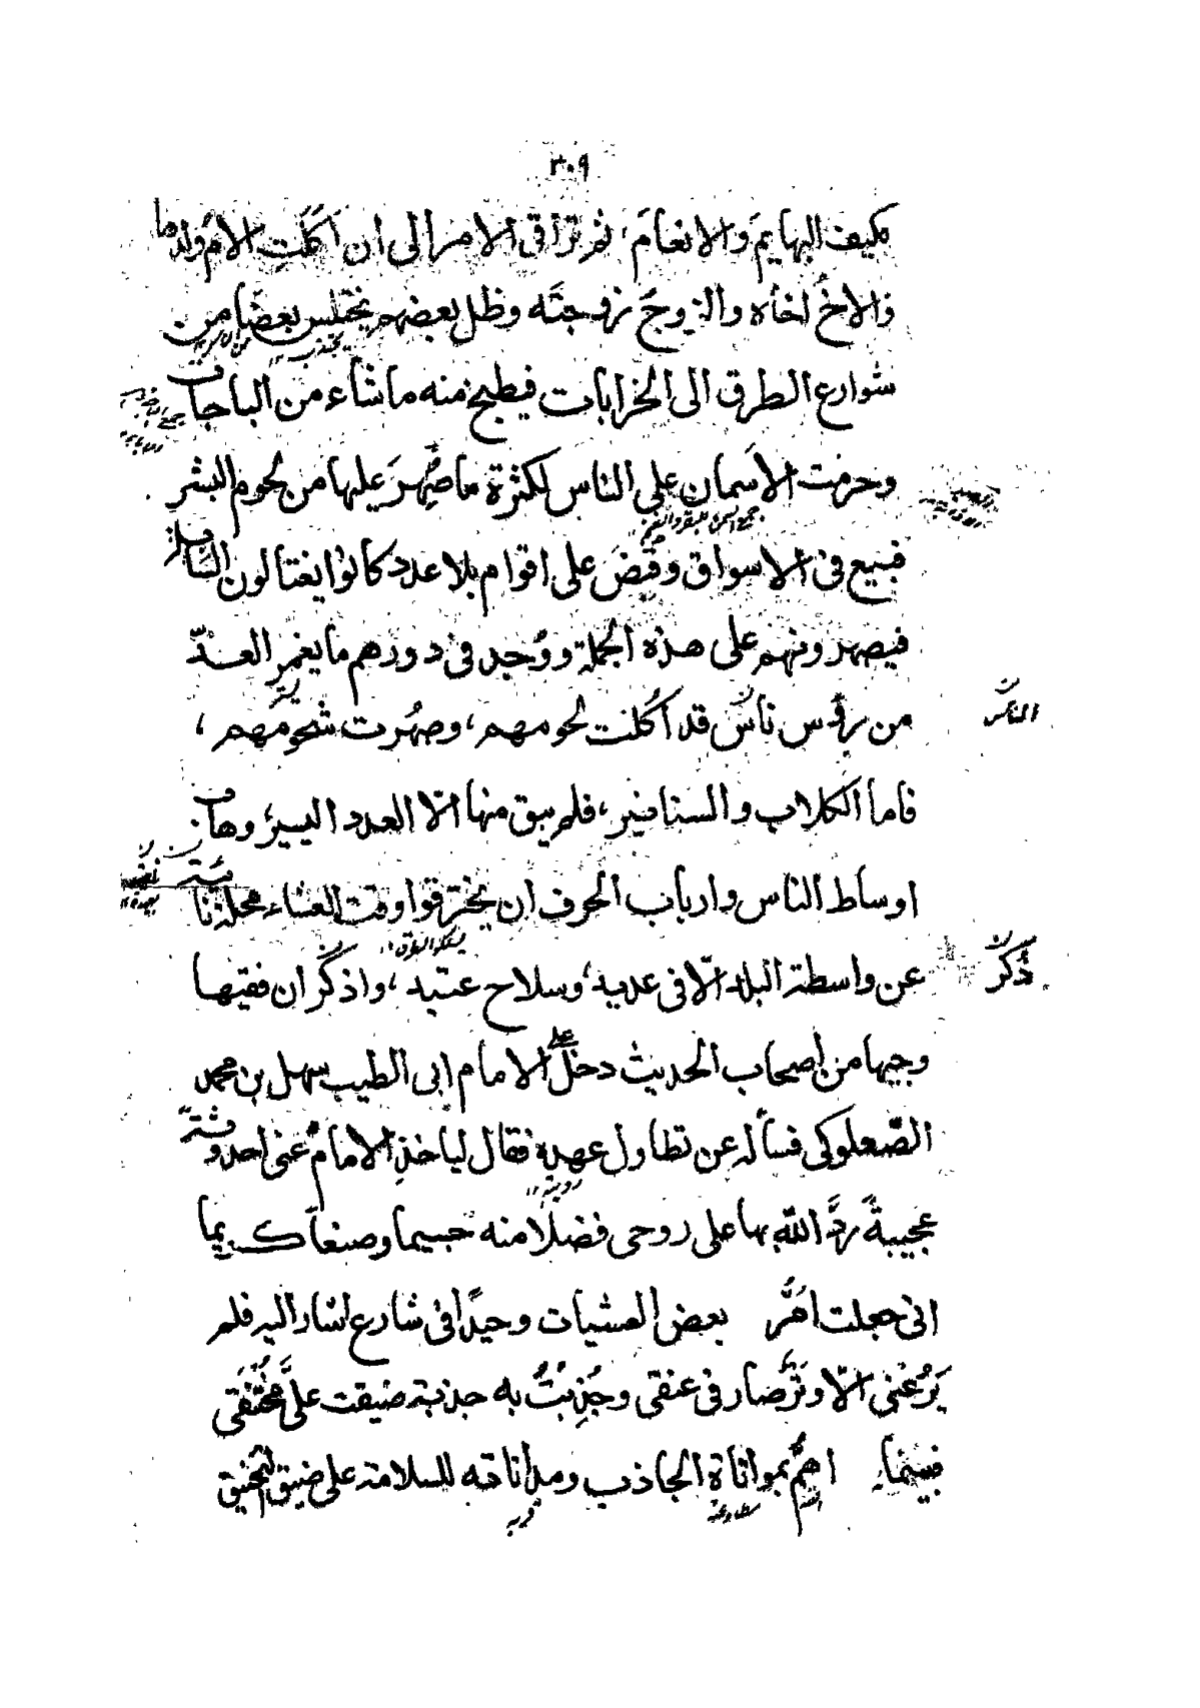 ٣٠٩
فكيف البهايمَ والانعامَ، ثم ترّاقى الامر الى ان اكَلَتِ الامُ ولدها
والاخُ اخاه والزوجُ زوجتَه وظل بعضهم يختلس بعضًا من
يجذب
شوارع الطرق الى الخرابات فيطبخ منه ما شاء من الباجات
وحرمت الاَسمان على الناس لكثرة ما صُهِرَ عليها من لحوم البشر
جمع السمن
فبيع فى الاسواق وقُبِضَ على اقوام بلا عدد كانوا يغتالون السَّابلة
فيصهرونهم على هذه الجملة ووُجد فى دورهم ما يغمر العدّ
من رؤس ناس قد اُكلت لحومهم، وصُهرت شحومُهم،
الناس
فاما الكلاب والسنانير، فلم يبق منها الّا العدد اليسير، وهاب
اوساط الناس وارباب الحرف ان يخترقوا وقت العشاء محلة نائية
يسلكوا الطرق
عن واسطة البلد الّا فى عدة، وسلاح عتيد، واذكُرُ ان فقيها
ذُكر
وجيها من اصحاب الحديث دخل على الامام ابى الطيب سهل بن محمد
الصّعلوكى فسأله عن تطاول عهده فقال لياخذِ الامامُ عنى احدوثة
رويته
عجيبةً ردَّ اللّه بها على روحى فضلًا منه جسيما وصنعًا كريما
انى جعلت اَمُرُّ بعض العشيات وحيدًا فى شارع اشار اليه فلم
يَرُعْنى الّا وَتَرٌ صار فى عنقى وجُذِبْتُ به جذبة ضيقت علىَّ مُخْتَنَقى
فبينما اهمُّ بمواتاة الجاذب ومداناته للسلامة على ضيق التخنيق
قربه